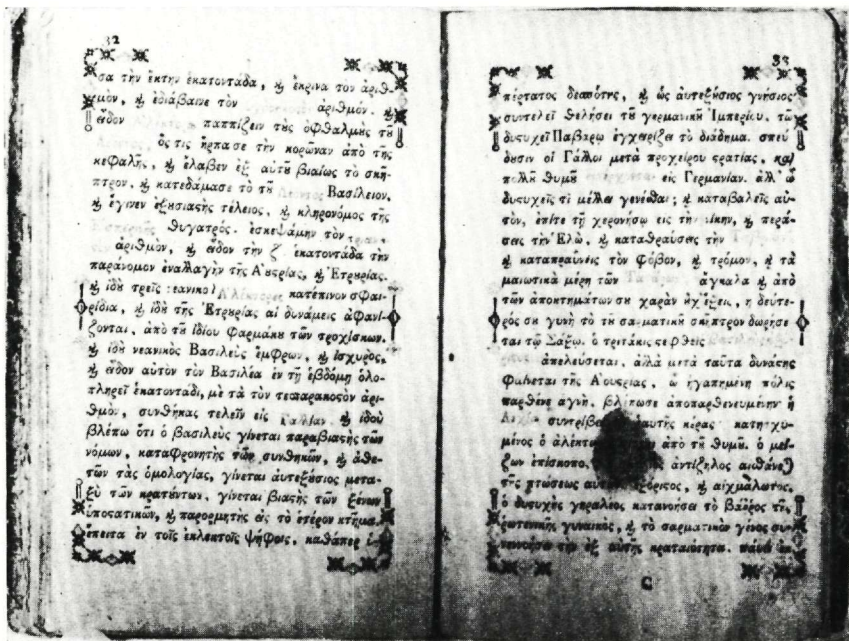 32
σα τὴν ἑκτὴν ἑκατοντάδα, ϗ ἔκρινα τὸν ἀριθ-
μὸν, ϗ ἐδιάβαινε τὸν ἀριθμὸν. ϗ
εἶδον παππίζειν τὰς ὀφθαλμὰς τȣ
ὅς τις ἥρπασε τὴν κορῶναν ἀπὸ τῆς
κεφαλῆς, ϗ ἔλαβεν ἐξ αὐτȣ βιαίως τὸ σκη-
πτρον. ϗ κατεδάμασε τὸ τȣ Λέοντος Βασίλειον.
ϗ ἔγινεν ἐξȣσιαςὴς τέλειος, ϗ κληρονόμος τῆς
θυγατρὸς. ἐσκεψάμην τὸν
ἀριθμὸν, ϗ εἶδον τὴν ζ ἑκατοντάδα τὴν
παράνομον ἐναλλαγὴν τῆς Αȣςρίας, ϗ Ἑτρȣρίας.
ϗ ἰδȣ τρεῖς νεανικοὶ Ἀλέκτορες κατέπινον σφαι-
ρίδια, ϗ ἰδȣ τῆς Ἑτρȣρίας αἱ δυνάμεις ἀφανί-
ζονται, ἀπὸ τȣ ἰδίου φαρμάκȣ τῶν τροχίσκων.
ϗ ἰδȣ νεανικὸς Βασιλεὺς ἔμφρων, ϗ ἰσχυρὸς,
ϗ εἶδον αὐτὸν τὸν Βασιλέα ἐν τῇ ἑβδόμῃ ὁλο-
πληρεῖ ἑκατοντάδι, μὲ τὰ τὸν τεσσαρακοςὸν ἀρι-
θμὸν, συνθήκας τελεῖν εἰς Γαλλίαν. ϗ ἰδοὺ
βλέπω ὅτι ὁ βασιλεὺς γίνεται παραβιαςὴς τῶν
νόμων, καταφρονητὴς τῶν συνθηκῶν, ϗ ἀθε-
τῶν τὰς ὁμολογίας, γίνεται αὐτεξȣσιος μετα-
ξὺ τῶν κρατȣντων. γίνεται βιαςὴς τῶν ξένων
ὑποςατικῶν, ϗ παρορμητὴς εἰς τὸ ἕτερον κτῆμα.
ἔπειτα ἐν τοῖς ἐκλεκτοῖς ψήφοις, καθάπερ ὑ-
33
πέρτατος δεσπότης, ϗ ὡς αὐτεξȣσιος γνήσιος
συντελεῖ θελήσει τȣ γερμανικȣ Ἰμπερίȣ. τῶ
δυςυχεῖ Παβάρω ἐγχειρίζει τὸ διάδημα. σπεύ
δȣσιν οἱ Γάλλοι μετὰ προχείρου ςρατίας, καὶ
πολλῆ θυμȣ εἰς Γερμανίαν. ἀλλ' ὦ
δυςυχεῖς τί μέλλει γενέσθαι; ϗ καταβαλεῖς αὐ-
τὸν, ἐπίτε τῇ χερονήσῳ εἰς τὴν νίκην, ϗ περά-
σεις τὴν Ἑλὼ, ϗ καταθραύσεις τὴν
ϗ καταπραΰνεις τὸν φόβον, ϗ τρόμον, ϗ τὰ
μαιωτικὰ μέρη τῶν ἄγκαλα ϗ ἀπὸ
τῶν ἀποκτημάτων σȣ χαρὰν ȣχ ἕξεις, η δευτέ-
ρὸς σȣ γυνὴ τὸ τȣ σαρματικȣ σκῆπτρον δωρήσε
ται τῷ Σάξω. ὁ τριτάκις
ἀπελεύσεται. ἀλλὰ μετὰ ταῦτα δυνάςης
φαίνεται τῆς Αȣςρίας, ὦ ἠγαπημένη πόλις
παρθένε ἁγνὴ. βλέπωσε ἀποπαρθενευμένην· ἡ
συντρίβε ἑαυτῆς κέρας κατησχυ-
μένος ὁ ἀλέκτω ἀπὸ τȣ θυμȣ. ὁ μεί-
ζων ἐπίσκοπο. ἀντίζηλος αἰσθάνε)
τῆς πτώσεως αὐτ ἐξόριςος, ϗ αἰχμάλωτος,
ὁ δυςυχὴς γεραλέος κατανοήσει τὸ βάρος τῆς
γυναικὸς, ϗ τὸ σαρματικὸν γένος συν-
νενοήσει τὴν ἐξ αὐτῆς κραταιότητα.
C